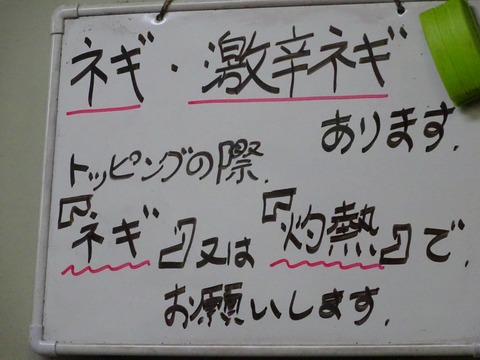 ネギ・激辛ネギ
あります.
トッピングの際.
『ネギ』又は『灼熱』で.
お願いします.